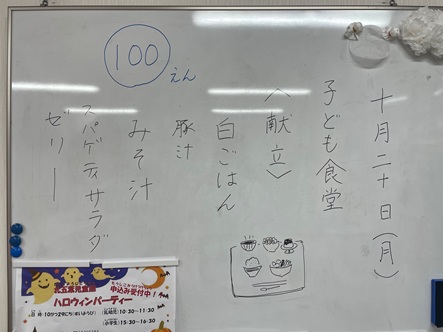 十月二十日(月)
子ども食堂
〈献立〉
白ごはん
豚汁
みそ汁
スパゲティサラダ
ゼリー
100
えん
申込み受付中!
ハロウィンパーティー
10:30~11:30
15:30~16:30